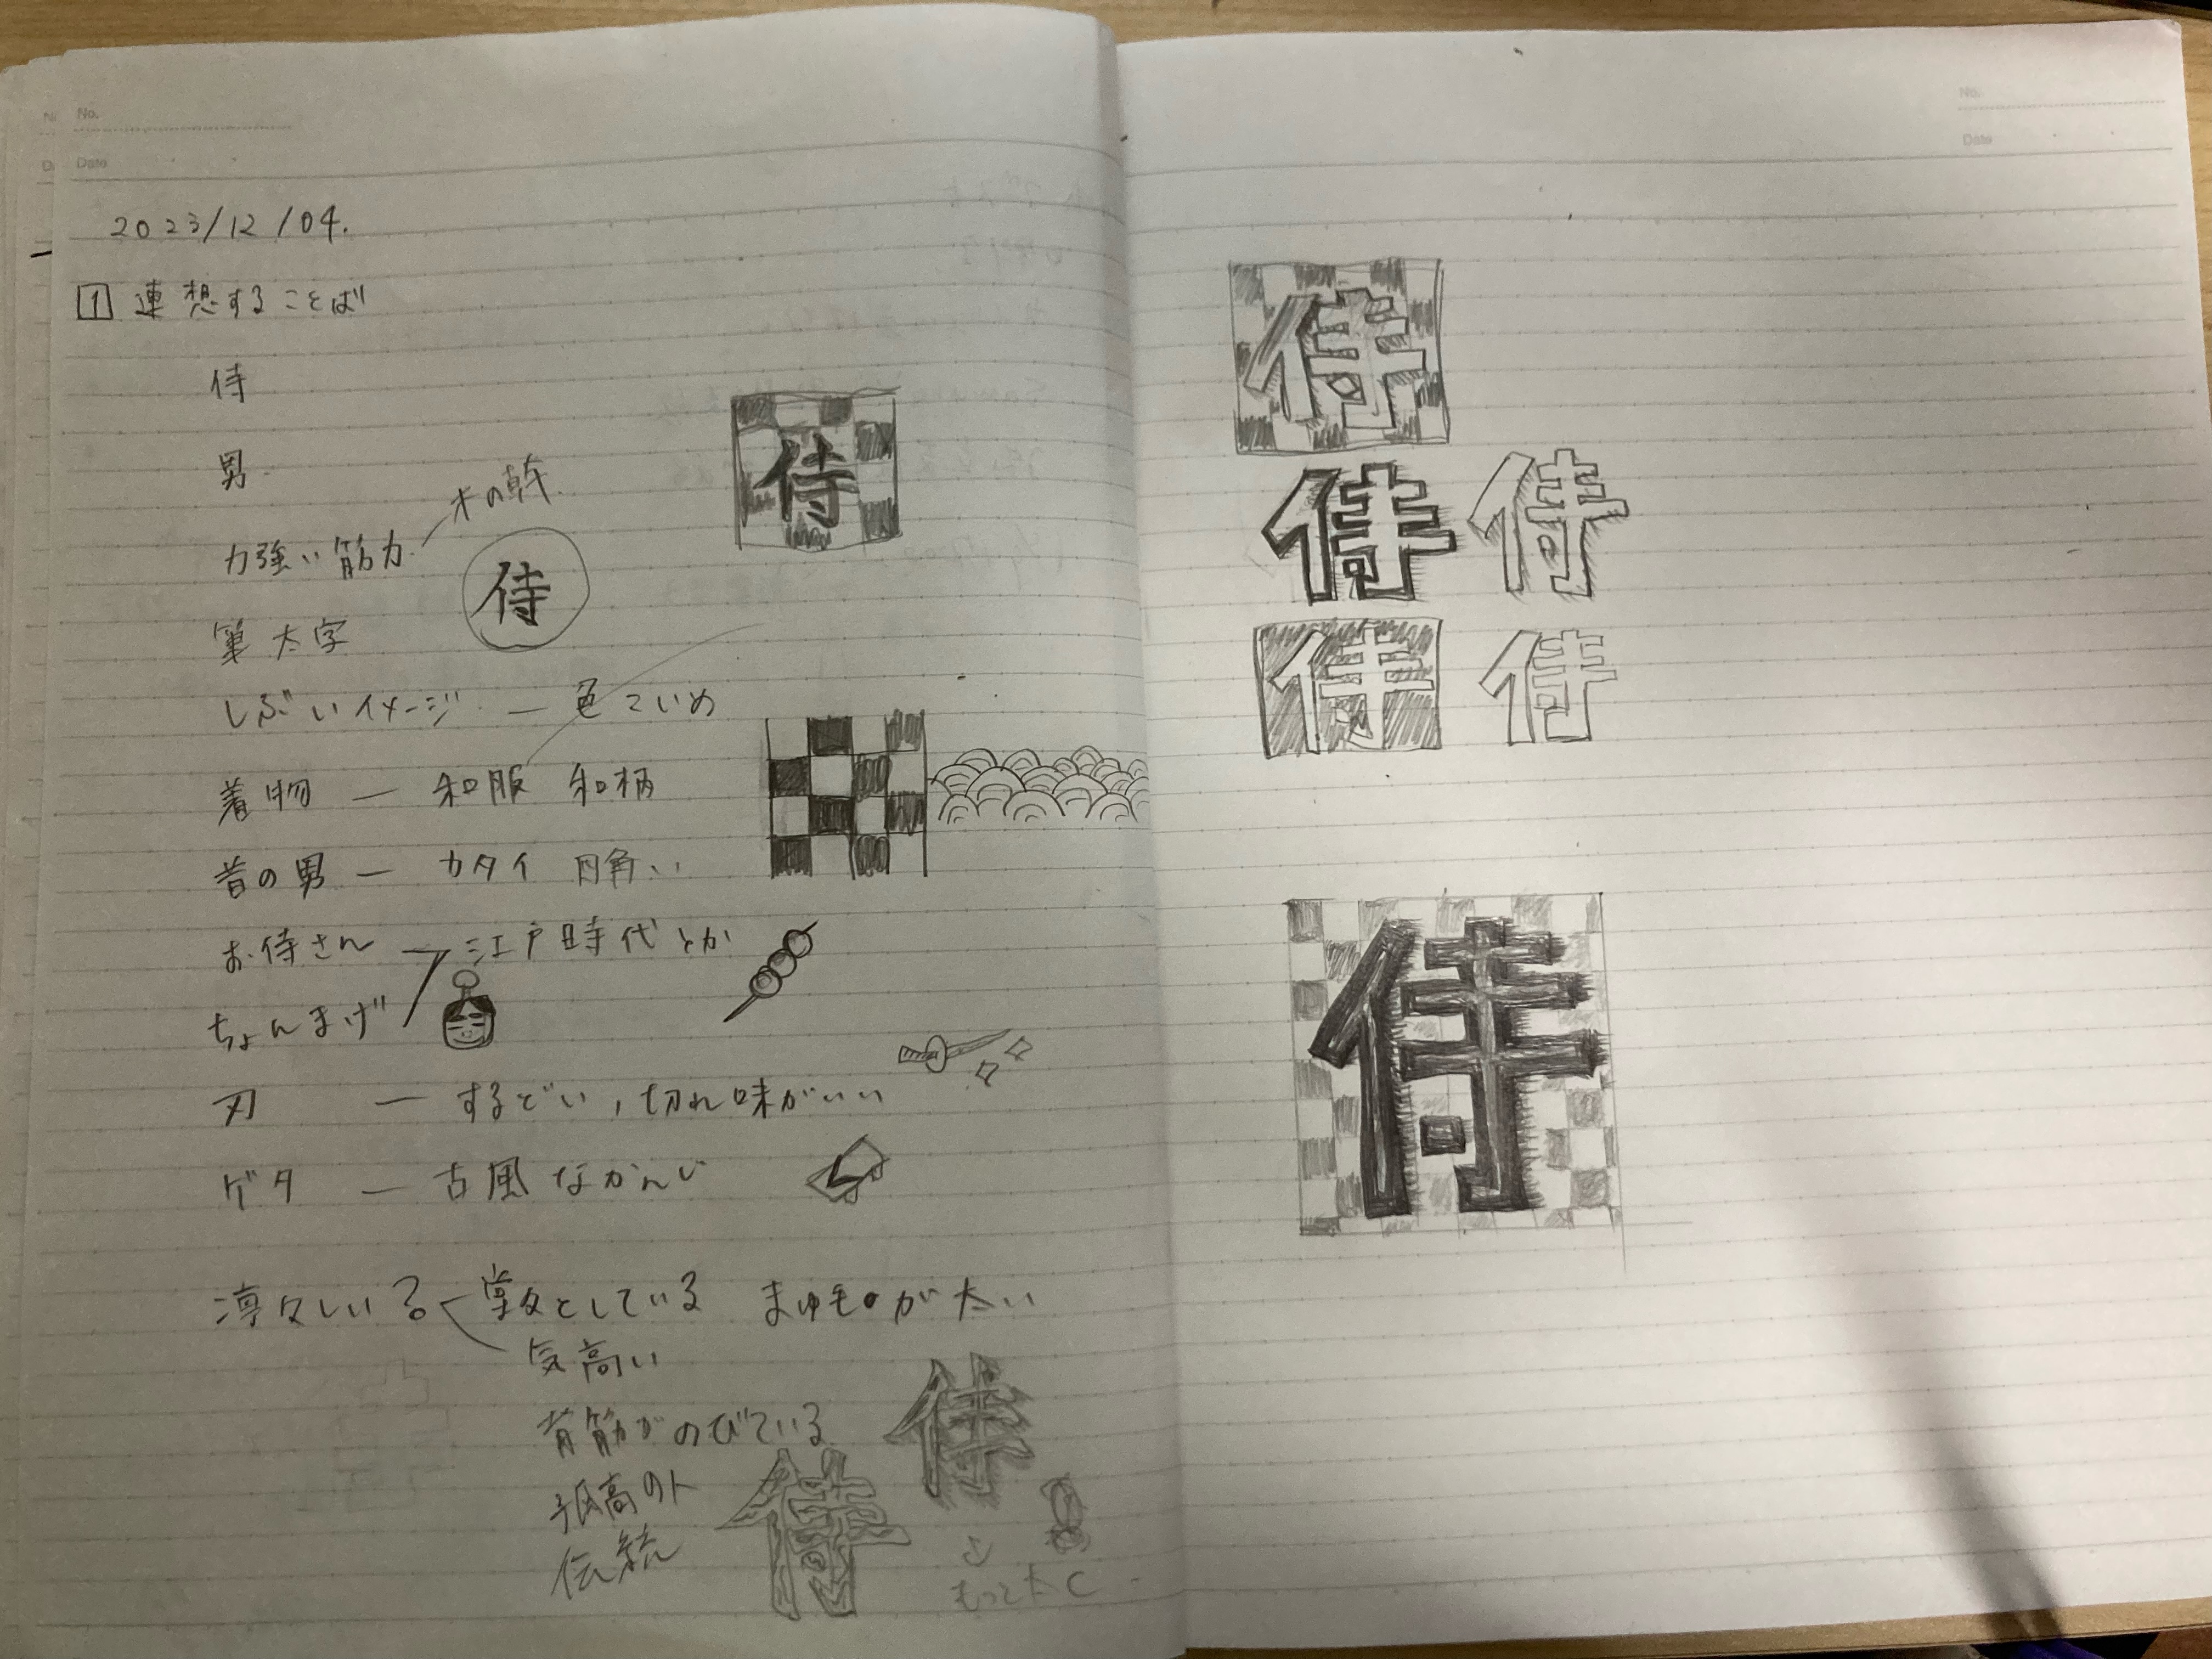 No.
Date
2023/12/04.
1 連想することば
侍
男
力強い筋力 木の幹
筆 太字
侍
侍
しぶいイメージ ー 色こいめ
着物 ー 和服 和柄
昔の男 ー カタイ 角い
お侍さん ー 江戸時代とか
ちょんまげ
刃 ー するどい,切れ味がいい
ゲタ ー 古風なかんじ
凛々しい 堂々としている まゆ毛が太い
気高い
背筋がのびている
孤高の人
伝統
侍
侍
もっと太く
No.
Date
侍
侍 侍
侍 侍
侍